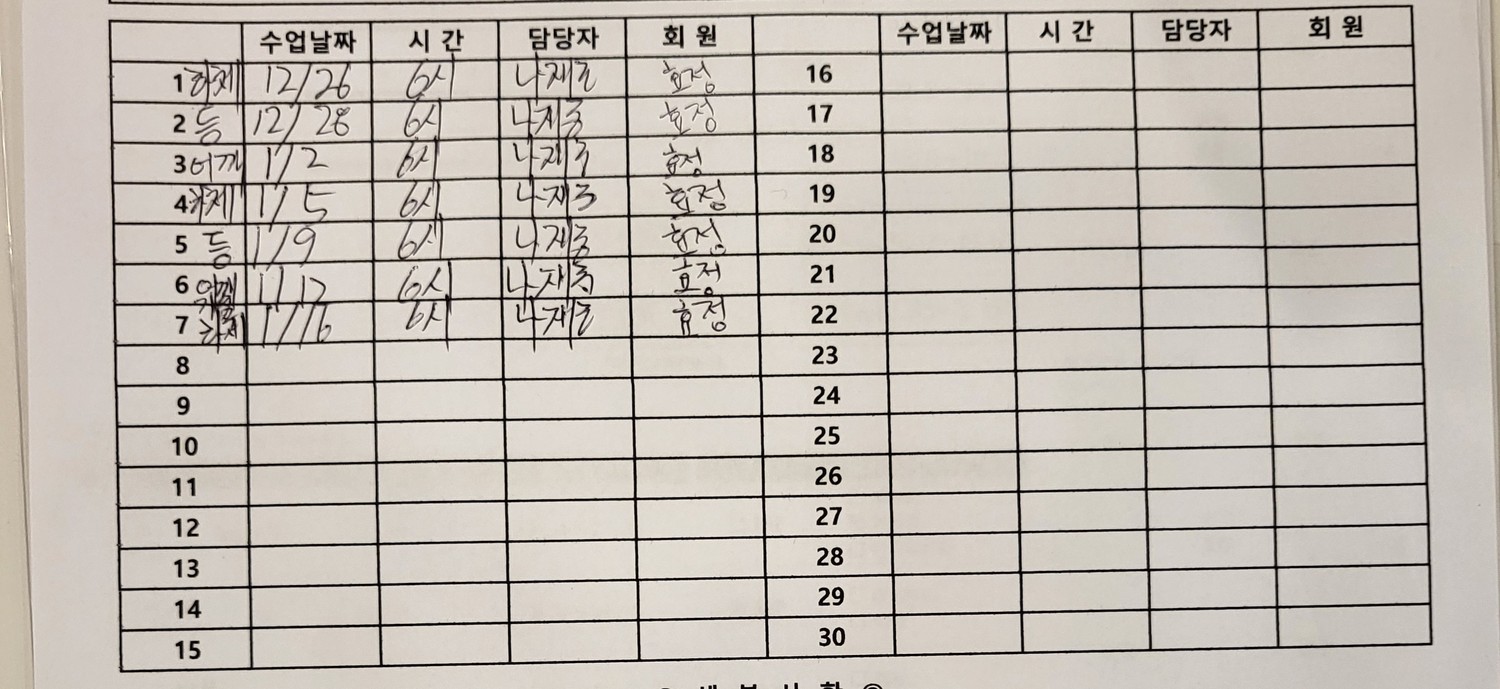 수업날짜 시 간 담당자 회 원 수업날짜 시 간 담당자 회 원
1 하체 12/26 6시 나재준 효정 16
2 등 12/28 6시 나재준 효정 17
3 어깨 1/2 6시 나재준 효정 18
4 하체 1/5 6시 나재준 효정 19
5 등 1/9 6시 나재준 효정 20
6 1/12 6시 나재준 효정 21
7 하체 1/16 6시 나재준 효정 22
8 23
9 24
10 25
11 26
12 27
13 28
14 29
15 30